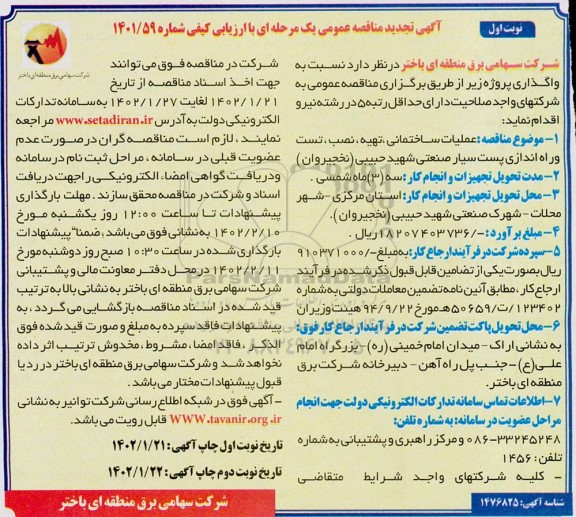 نوبت اول
آگهی تجدید مناقصه عمومی یک مرحله ای با ارزیابی کیفی شماره ۱۴۰۱/۵۹
شرکت سهامی برق منطقه ای باختر
شرکت سهامی برق منطقه ای باختر درنظر دارد نسبت به
واگذاری پروژه زیر از طریق برگزاری مناقصه عمومی به
شرکتهای واجد صلاحیت دارای حداقل رتبه ۵ در رشته نیرو
اقدام نماید:
۱- موضوع مناقصه: عملیات ساختمانی، تهیه، نصب، تست
وراه اندازی پست سیار صنعتی شهید حبیبی (نخجیروان)
۲- مدت تحویل تجهیزات و انجام کار: سه (۳) ماه شمسی.
۳- محل تحویل تجهیزات و انجام کار: استان مرکزی - شهر
محلات - شهرک صنعتی شهید حبیبی (نخجیروان).
۴- مبلغ برآورد: -/۱۸۲۰۷۴۰۳۷۳۶ ریال.
۵- سپرده شرکت در فرآیند ارجاع کار: به مبلغ -/۹۱۰۳۷۱۰۰۰
ریال بصورت یکی از تضامین قابل قبول ذکر شده در فرآیند
ارجاع کار، مطابق آئین نامه تضمین معاملات دولتی به شماره
۱۲۳۴۰۲/ت۵۰۶۵۹هـ مورخ ۹۴/۹/۲۲ هیئت وزیران
۶- محل تحویل پاکت تضمین شرکت در فرآیند ارجاع کار فوق:
به نشانی اراک - میدان امام خمینی (ره) - بزرگراه امام
علی (ع) - جنب پل راه آهن - دبیرخانه شرکت برق
منطقه ای باختر.
۷- اطلاعات تماس سامانه تدارکات الکترونیکی دولت جهت انجام
مراحل عضویت در سامانه: به شماره تلفن:
۰۸۶-۳۳۲۴۵۲۴۸ و مرکز راهبری و پشتیبانی به شماره
تلفن: ۱۴۵۶
- کلیه شرکتهای واجد شرایط متقاضی
شرکت در مناقصه فوق می توانند
جهت اخذ اسناد مناقصه از تاریخ
۱۴۰۲/۱/۲۱ لغایت ۱۴۰۲/۱/۲۷ به سامانه تدارکات
الکترونیکی دولت به آدرس www.setadiran.ir مراجعه
نمایند، لازم است مناقصه گران در صورت عدم
عضویت قبلی در سامانه، مراحل ثبت نام در سامانه
ودریافت گواهی امضاء الکترونیکی را جهت دریافت
اسناد و شرکت در مناقصه محقق سازند. مهلت بارگذاری
پیشنهادات تا ساعت ۱۲:۰۰ روز یکشنبه مورخ
۱۴۰۲/۲/۱۰ به نشانی فوق می باشد، ضمنا" پیشنهادات
بارگذاری شده در ساعت ۱۰:۳۰ صبح روز دوشنبه مورخ
۱۴۰۲/۲/۱۱ در محل دفتر معاونت مالی و پشتیبانی
شرکت برق منطقه ای باختر به نشانی بالا به ترتیب
قید شده در اسناد مناقصه بازگشایی می گردد، به
پیشنهادات فاقد سپرده به مبلغ و صورت قید شده فوق
الذکر، فاقد امضاء، مشروط، مخدوش ترتیب اثر داده
نخواهد شد و شرکت سهامی برق منطقه ای باختر در رد یا
قبول پیشنهادات مختار می باشد.
- آگهی فوق در شبکه اطلاع رسانی شرکت توانیر به نشانی
WWW.tavanir.org.ir قابل رویت می باشد.
تاریخ نوبت اول چاپ آگهی: ۱۴۰۲/۱/۲۱
تاریخ نوبت دوم چاپ آگهی: ۱۴۰۲/۱/۲۲
شناسه آگهی: ۱۴۷۶۸۲۵
شرکت سهامی برق منطقه ای باختر
ParsNamadData